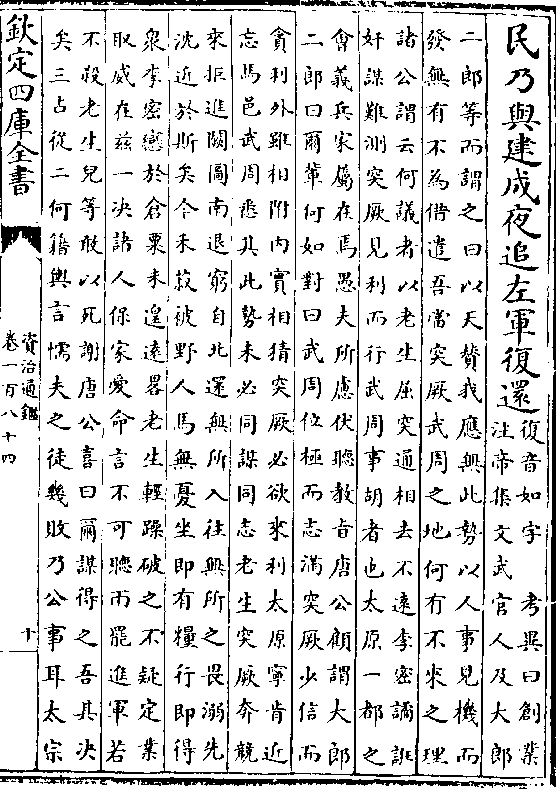 民乃與建成夜追左軍復還
復音如字　考異曰創業
注帝集文武官人及大郎
二郎等而謂之曰以天贊我應無此勢以人事見機而
發無有不為借遣吾當突厥武周之地何有不來之理
諸公謂云何議者以老生屈突通相去不遠李密譎誑
奸謀難測突厥見利而行武周事胡者也太原一都之
會義兵家屬在焉愚夫所慮伏聽教旨唐公顧謂大郎
二郎曰爾輩何如對曰武周位極而志滿突厥少信而
貪利外雖相附内實相猜突厥必欲來利太原寧肯近
忘馬邑武周悉其此勢未必同謀同志老生突厥奔競
來拒進闕圖南退窮自北還無所入往無所之畏溺先
沈近於斯矣今禾菽被野人馬無憂坐即有糧行即得
衆李密戀於倉粟未遑遠畧老生輕躁破之不疑定業
取威在兹一決諸人保家愛命言不可聽雨罷進軍若
不殺老生兒等敢以死謝唐公喜曰爾謀得之吾其決
矣三占從二何籍輿言懦夫之徒幾敗乃公事耳太宗
欽定四庫全書
資治通鑑
卷一百八十四
十